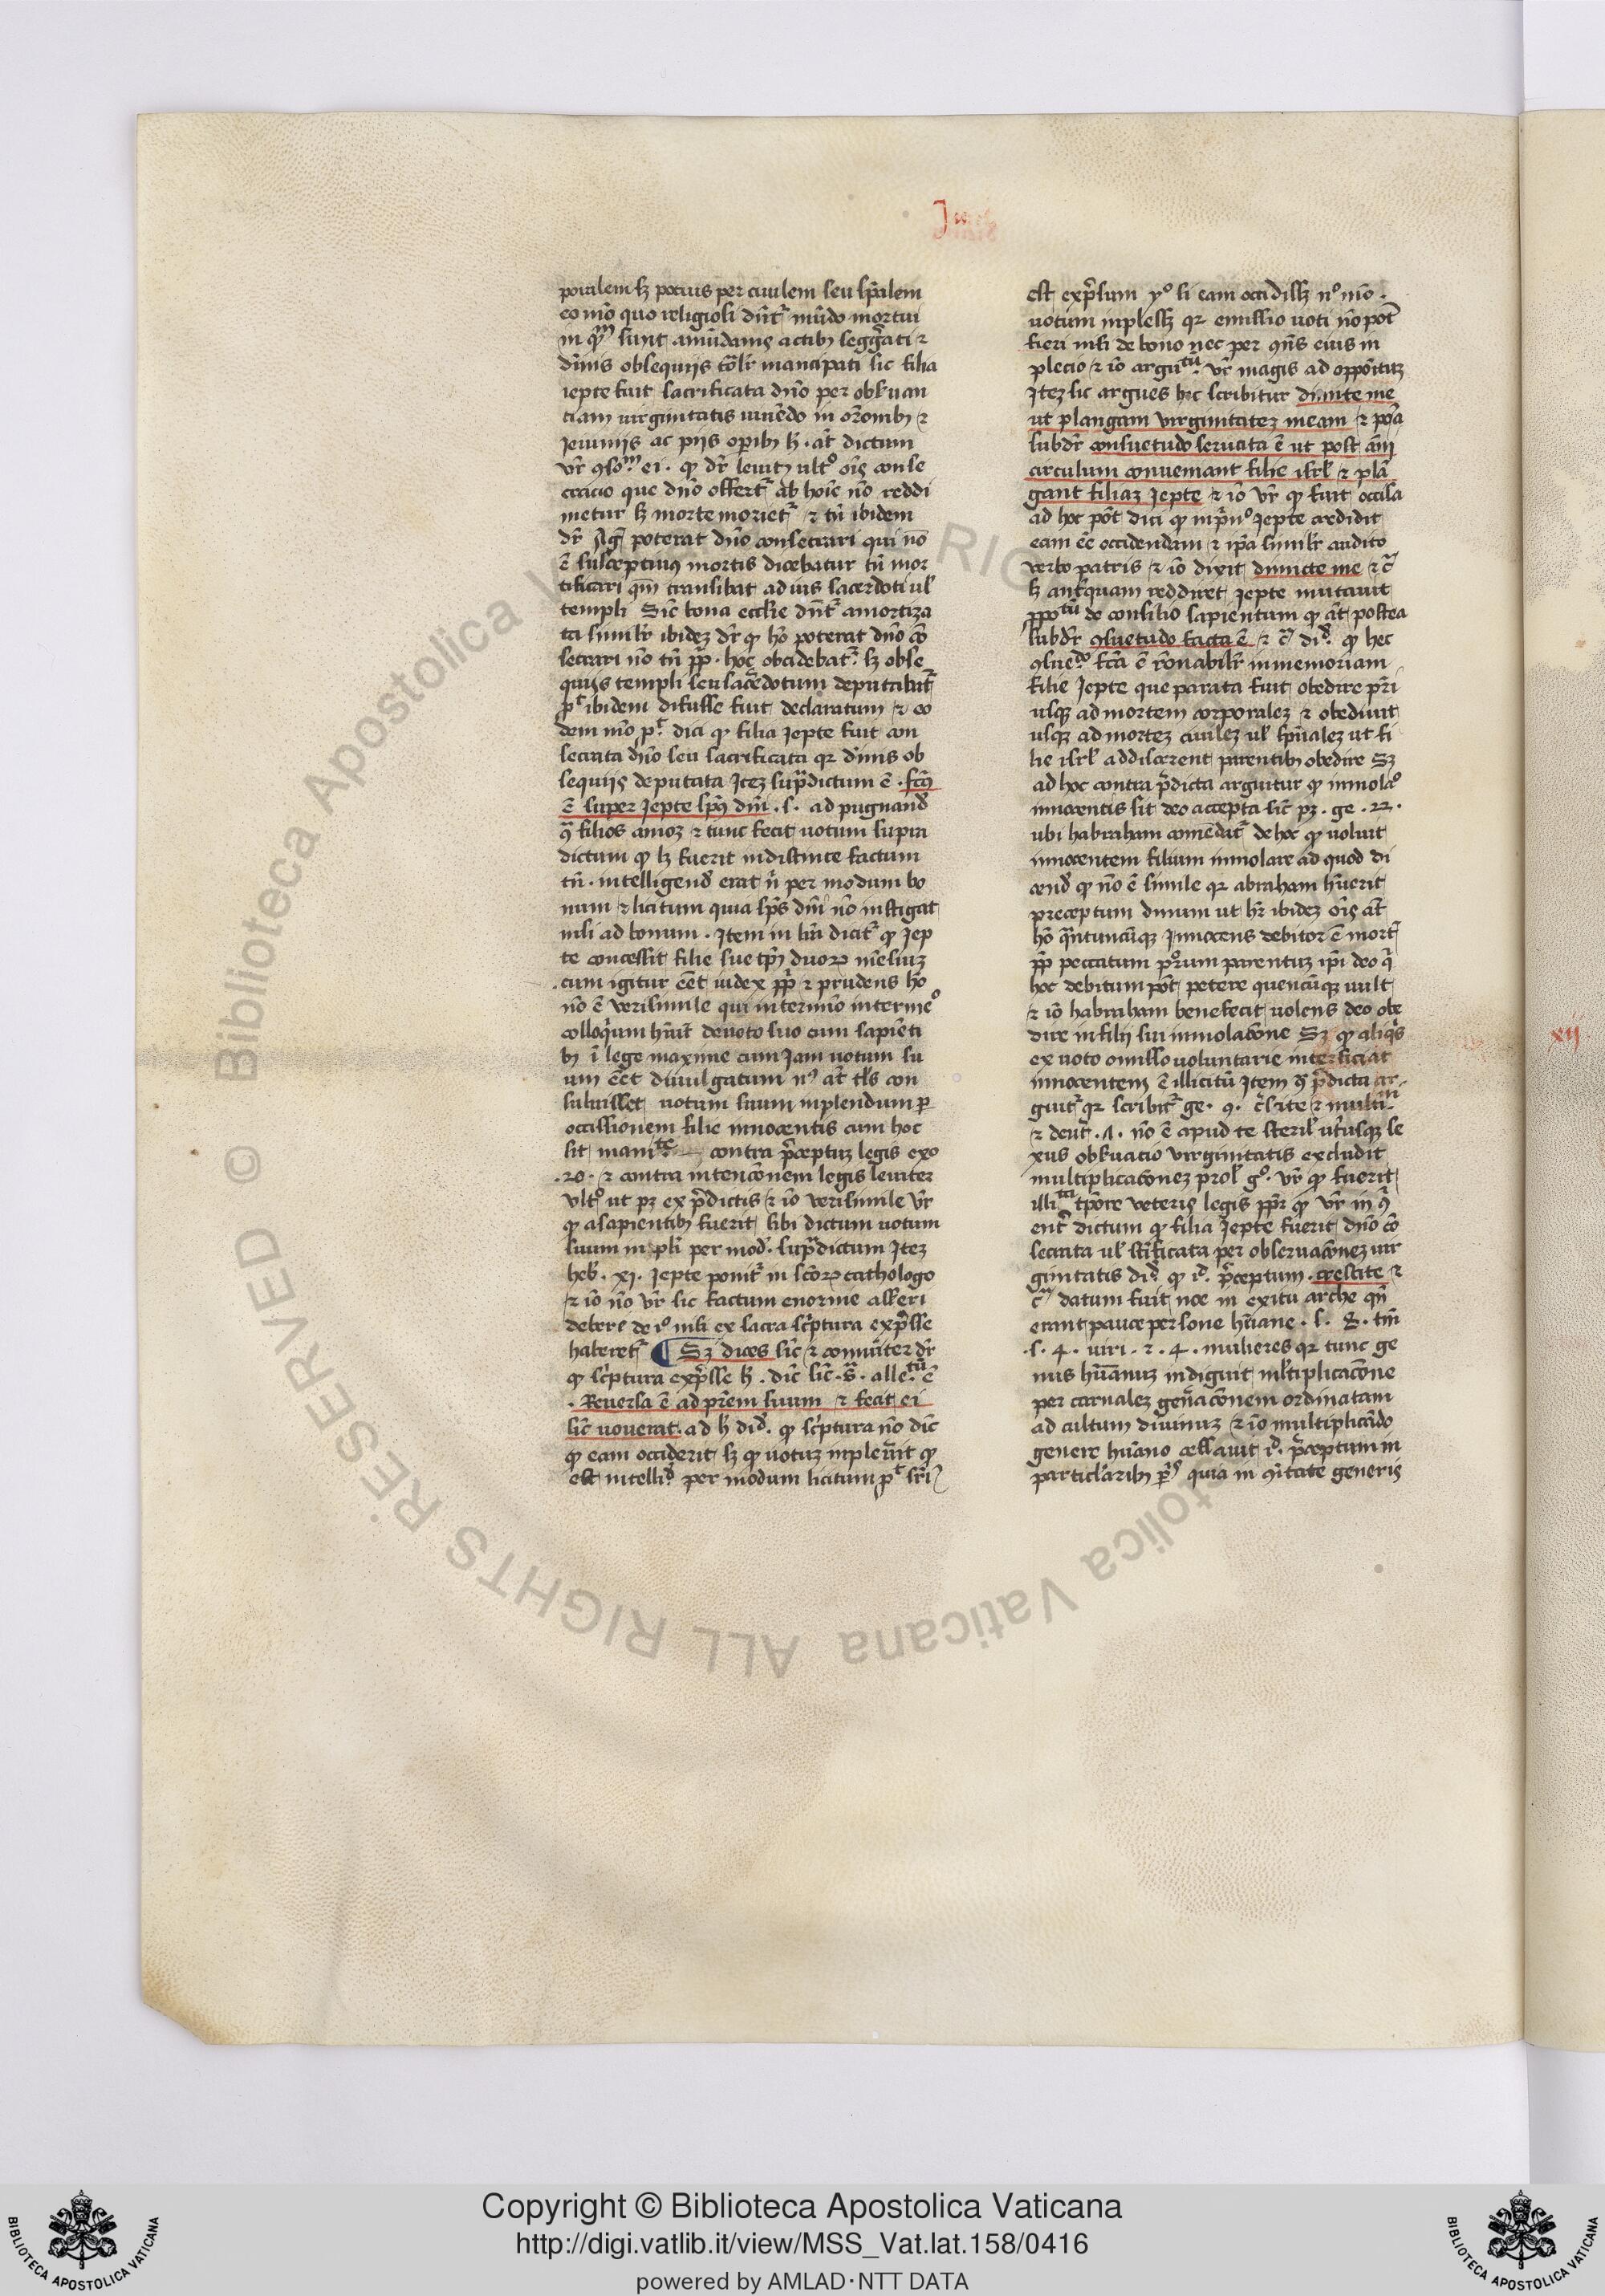 Judic
poralem sꝫ pocius per ciuilem seu sp̄ualem
eo mō quo religiosi dn̄t᷑ mūdo mortui
in qᵐ sunt amūdanis actibꝫ seg̃gati ⁊
diuīis obsequijs tōlr̄ mancipati sic filia
iepte fuit sacrificata dn̄o per obseruan
ciam virginitatis viuēdo in or̄onibꝫ ⁊
Ieiunijs ac pijs oꝑibꝫ h̄ . aūt dictum
vr̄ ꝯsoᵐ ei . ꝙ dr̄ leuitꝫ vltᵒ oīs conse
cracio que dn̄o offert᷑ ab hoīe nō reddi
metur sꝫ morte moriet᷑ ⁊ tn̄ ibidem
dr̄ poterat dn̄o consecrari qui nō
ē susceptiuꝰ mortis dicebatur tn̄ mor
tificari qn̄ transibat ad vis sacerdoti vl̄
templi Sic̄ bona ecclīe dn̄t᷑ amortiza
ta simil̄r ibidē dr̄ ꝙ hō poterat dn̄o cō
secrari nō tn̄ ꝓp̄ . hoc occidebat᷑ sꝫ obse
quijs templi seu sac̃dotum deputabat᷑
p᷑ ibidem difusse fuit declaratum ⁊ eo
dem mō p᷑ dici ꝙ filia Jepte fuit con
secrata dn̄o seu sacrificata qꝛ diuīis ob
sequijs deputata Itē sup̃dictum ē . fc̄ꝰ
ē super Jepte sp̄ꝰ dn̄i . s . ad pugnand̄
ꝯ̃ filios amon ⁊ tunc fecit votum supra
dictum ꝙ lꝫ fuerit indistincte factum
tn̄ . intelligend̄ erat n̄ per modum bo
num ⁊ licitum quia sp̄s dn̄i nō instigat
nisi ad bonum . Item in lr̄a dicit᷑ ꝙ Jep
te concessit filie sue tp̄ꝰ duoꝝ mēsiuꝫ
cum igitur eēt iudex ꝓp̄ ⁊ prudens hō
nō ē verisimile qui in termīo intermeᵒ
colloquium hūit deuoto suo cum sapiēti
bꝫ ī lege maxime cum Jam votum su
um eēt diuulgatum nᵒ aūt tl̄s con
suluisset votum suum inplendum ꝑ
occissionem filie innocentis cum hoc
sit maniᵗᵉ contra p̄ceptuꝫ legis exo
.20. ⁊ contra intencōnem legis leuiter
vltᵒ ut pꝫ ex p̄dictis ⁊ iō verisimile vr̄
ꝙ a sapientibꝫ fuerit sibi dictum votum
suum inpl̄i per mod̄ . sup̃dictum Itē
heb̄ . xj . Jepte ponit᷑ in sc̄oꝝ cathologo
⁊ iō nō vr̄ sic factum enorme asseri
debere de iᵒ nisi ex sacra sc̄ptura exp̄sse
haberet᷑ ¶ Sꝫ dices sic̄ ⁊ cōmūiter dr̄
ꝙ sc̄ptura exp̄sse h̄ . dic̄ sic̄ . s̃ . alleᵗᵘ̄ ē
. Reuersa ē ad pr̄em suum ⁊ fecit ei
sic̄ vouerat . ad h̄ did̄ . ꝙ sc̄ptura nō dic̄
ꝙ eam occiderit sꝫ ꝙ votuꝫ inpleūit ꝙ
est intelli᷑ per modum licitum p᷑
est exp̄sum yᵒ si eam occidissꝫ nᵒ mō .
votum inplessꝫ qꝛ emissio voti nō pot᷑
fieri nisi de bono nec per ꝯn̄s eius in
plecio ⁊ iō arguᵗᵘ̄ vr̄ magis ad oppōituꝫ
Itē sic argues hic scribitur dimitte me
ut plangam virginitateꝫ meam ⁊ pōa
subdr̄ consuetudo seruata ē ut post ānj
circulum conueniant filie isrl̄ ⁊ plā
gant filiaꝫ Jepte ⁊ iō vr̄ ꝙ fuit occisa
ad hoc pōt dici ꝙ inp̄nᵒ Jepte credidit
eam eē occidendam ⁊ ip̄a simil̄r audito
verbo patris ⁊ iō dixit dimicte me ⁊ c̃
sꝫ anteq̄uam reddiret Jepte mutauit
ꝓpoᵗᵘ̄ de consilio sapientum ꝙ aūt postea
subdr̄ ꝯsuetudo facta ē ⁊ c̃ did̄ ꝙ hec
ꝯsuedᵒ fc̄a ē rōnabil̄r in memoriam
filie Jepte que parata fuit obedire pr̄i
usqꝫ ad mortem corporaleꝫ ⁊ obediuit
usqꝫ ad morteꝫ ciuileꝫ vl̄ sp̄ualeꝫ ut fi
lie isrl̄ addiscerent parentibꝫ obedire Sꝫ
ad hoc contra p̄dicta arguitur ꝙ inmolaᵒ
innocentis sit deo accepta sic̄ pꝫ . ge . 22 .
ubi habraham comēdat᷑ de hoc ꝙ voluit
innocentem filium inmolare ad quod di
cend̄ ꝙ nō ē simile qꝛ abraham hūerit
preceptum diuinum ut hr̄ ibideꝫ oīs aūt
hō q̃ntuncūqꝫ Innocens debitor ē mort᷑
ꝓp̄ peccatum pr̄orum parentuꝫ ip̄i deo q̄
hoc debitum pōt petere quencūqꝫ vult
⁊ iō habraham benefecit volens deo obe
dire in filij sui inmolacōne Sꝫ ꝙ aliq̄s
ex voto omisso voluntarie interficiat
innocentem ē illicitū Item ꝯ̃ p̄dicta ar
guit᷑ qꝛ scribit᷑ ge . 9 . c̄scite ⁊ multiᵐ
⁊ deut᷑ . 7 . nō ē apud te steril̄ ut̄usqꝫ se
xus obseruacio virginitatis excludit
multiplicacōneꝫ prol̄ gᵒ . vr̄ ꝙ fuerit
illiᵗᵃ tp̄ore veteris legis ꝓp̄ ꝙ vr̄ in ꝯ̄
ent᷑ dictum ꝙ filia Jepte fuerit dn̄o cō
secrata vl̄ sc̄ificata per obseruacōneꝫ vir
ginitatis did̄ ꝙ id̄ p̄ceptum . crescite ⁊
c̃ datum fuit noe in exitu arche qn̄
erant pauce persone hūane . s . 8 . tm̄
. s . 4 . viri . ⁊ . 4 . mulieres qꝛ tunc ge
nus hūanuꝫ indiguit ml̄tiplicacōne
per carnaleꝫ gen̄acōnem ordinatam
ad cultum diuinuꝫ ⁊ iō multiplicādo
genere hūano cessauit id̄ p̄ceptum in
particl̄aribꝫ ꝑ quia in ꝯ̄itate generis
xij
Copyright © Biblioteca Apostolica Vaticana
http://digi.vatlib.it/view/MSS_Vat.lat.158/0416
powered by AMLAD·NTT DATA